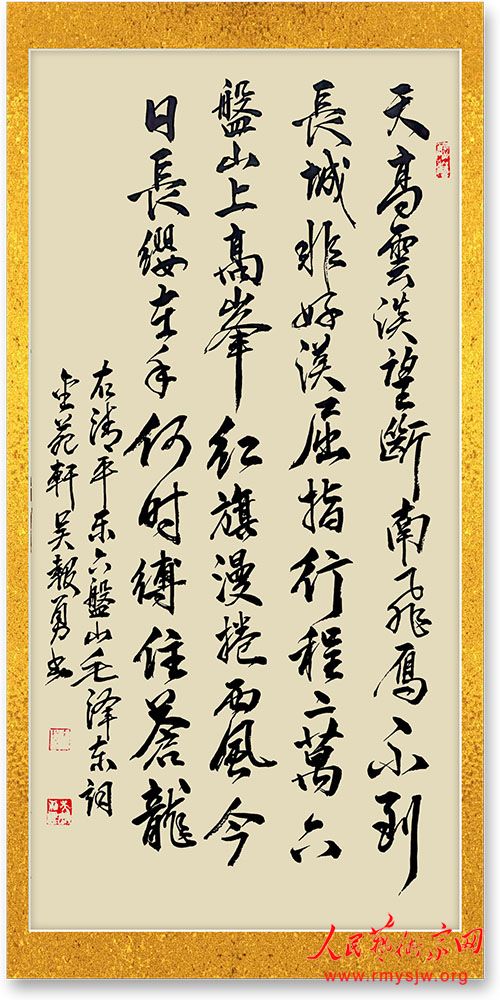 天高雲淡望斷南飛雁不到
長城非好漢屈指行程二萬六
盤山上高峯紅旗漫捲西風今
日長纓在手何时縛住蒼龍
右清平乐六盤山毛泽东詞
金苑軒吴报勇书
人民藝術家网
www.rmysjw.org